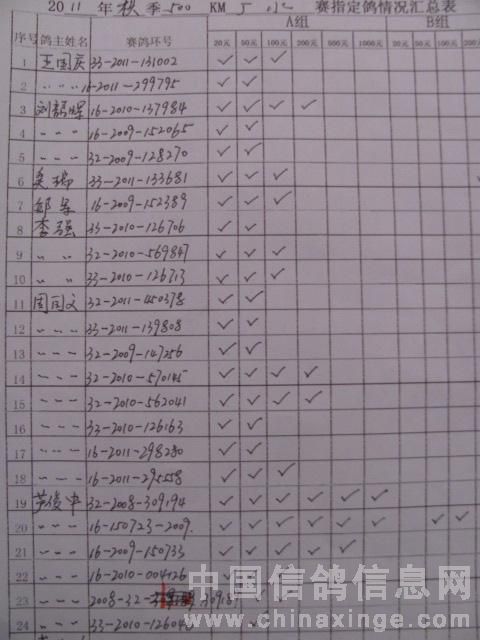 2011 年 秋 季 500 KM 赛指定鸽情况汇总表
序号 鸽主姓名 赛鸽环号 A组 B组
20元 50元 100元 200元 500元 1000元 20元 50元 100元 200
1 王国庆 33-2011-131002 ✓ ✓ ✓
2 〃 〃 〃 16-2011-299795 ✓ ✓
3 16-2010-137984 ✓ ✓ ✓ ✓
4 〃 〃 〃 16-2009-152065 ✓ ✓
5 〃 〃 〃 32-2009-128270 ✓ ✓
6 33-2011-133681 ✓ ✓ ✓
7 16-2009-152389 ✓ ✓ ✓
8 李强 33-2010-126706 ✓ ✓
9 〃 〃 32-2010-569847 ✓ ✓ ✓
10 〃 〃 33-2010-126713 ✓ ✓ ✓
11 周国文 32-2011-450378 ✓ ✓
12 〃 〃 〃 33-2011-139808 ✓ ✓
13 〃 〃 〃 32-2009-147256 ✓ ✓
14 〃 〃 〃 32-2010-570145 ✓ ✓ ✓ ✓
15 〃 〃 〃 32-2010-562041 ✓ ✓ ✓ ✓
16 〃 〃 〃 33-2010-126163 ✓ ✓
17 〃 〃 〃 16-2011-298280 ✓ ✓
18 〃 〃 〃 16-2011-295558 ✓ ✓ ✓
19 32-2008-309194 ✓ ✓ ✓ ✓ ✓ ✓
20 〃 〃 〃 16-150723-2009. ✓ ✓ ✓ ✓ ✓ ✓ ✓ ✓
21 〃 〃 〃 16-2009-150733 ✓ ✓ ✓ ✓ ✓
22 〃 〃 〃 16-2010-004126 ✓
23 〃 〃 〃 2008-32-
24 〃 〃 〃 33-2010-126048
中国信鸽信息网
www.chinaxinge.com